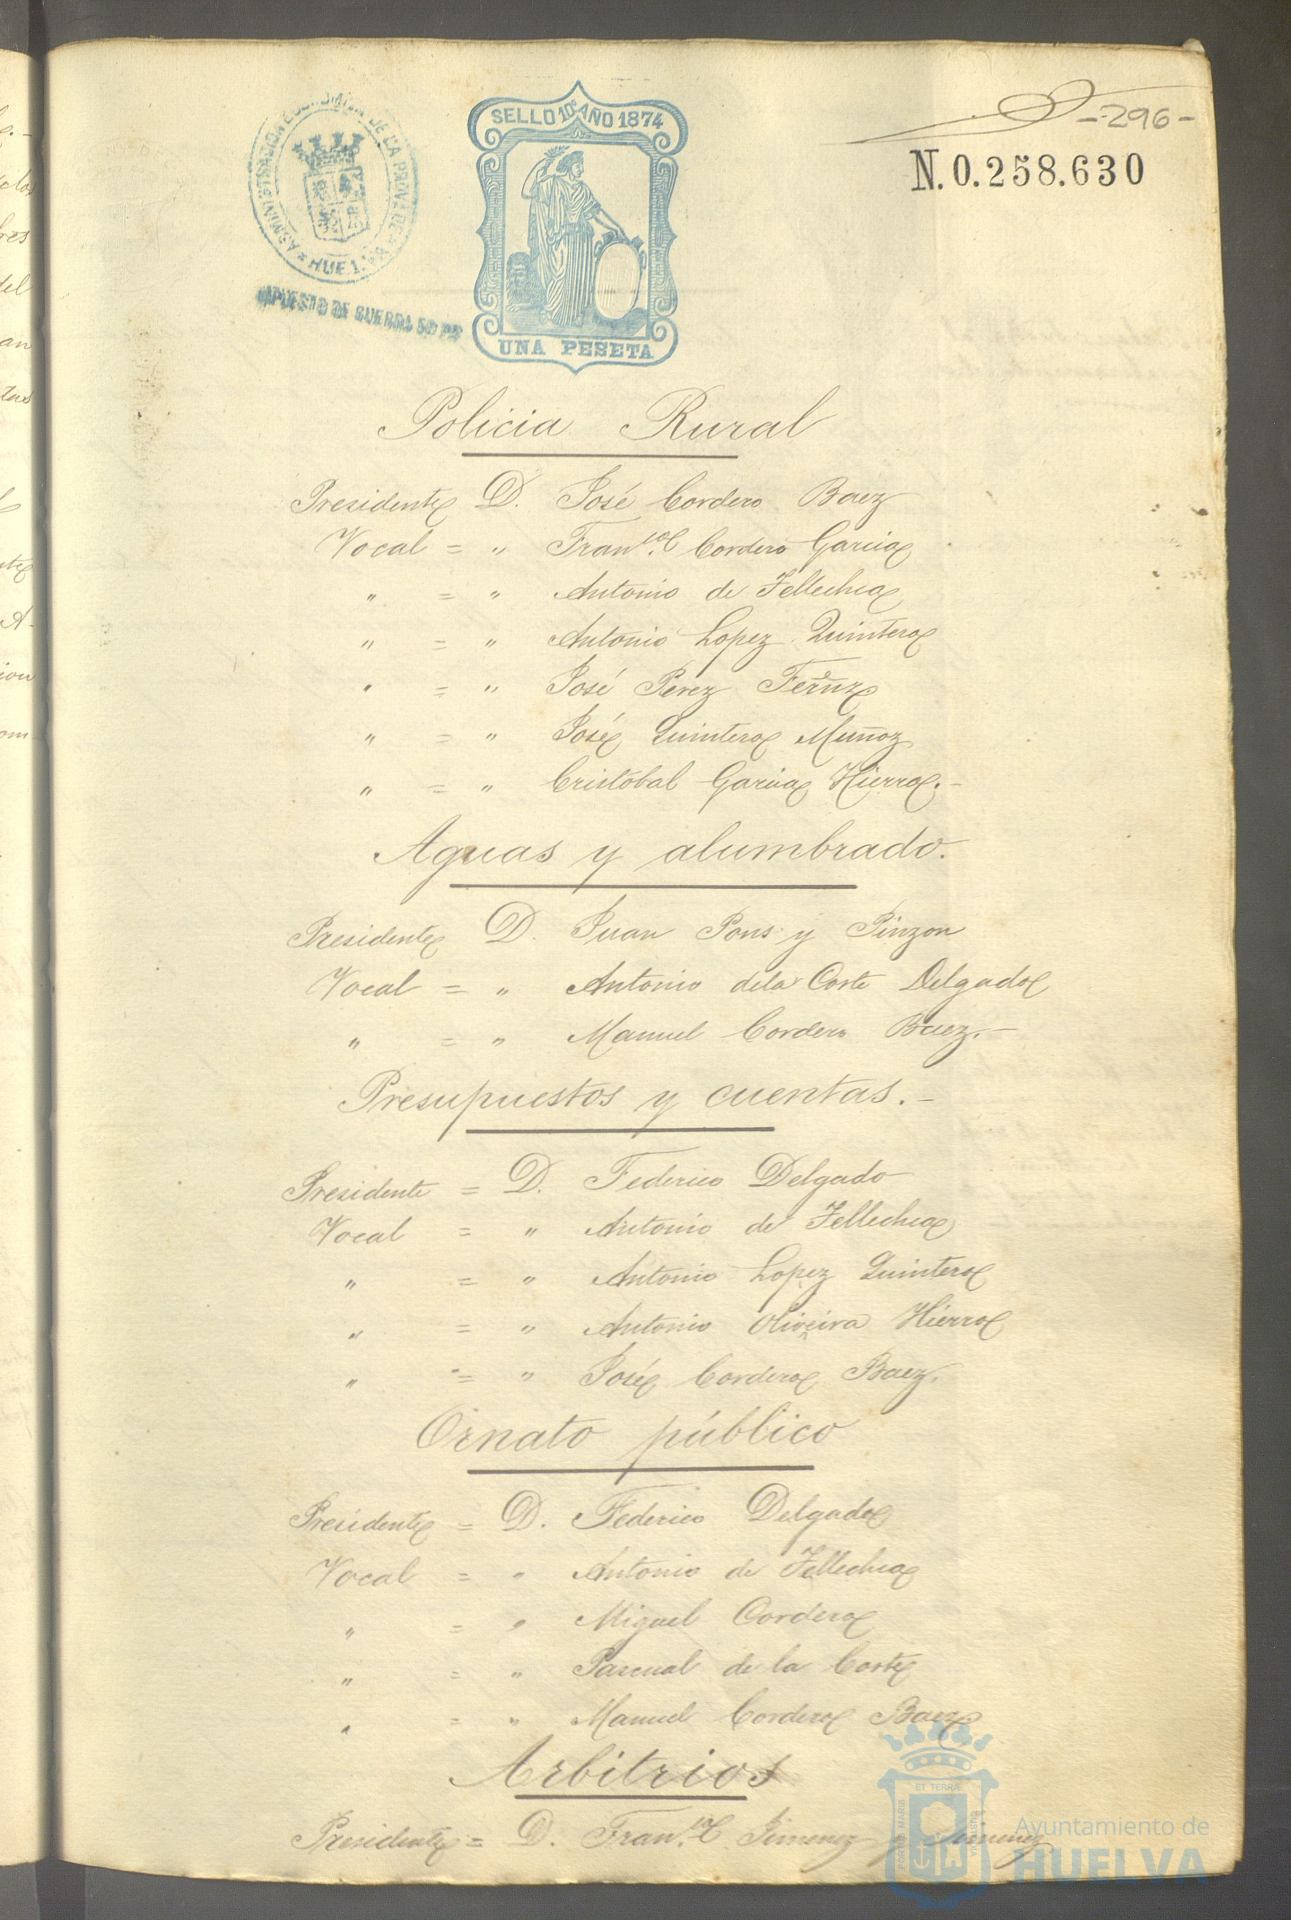 -296-
N. 0.258.630
ADMINISTRACION ECONOMICA DE LA PROV. DE HUELVA
IMPUESTO DE GUERRA 50
SELLO 10º AÑO 1874
UNA PESETA
Policia Rural
Presidente D. José Cordero Baez
Vocal = " Fran.co Cordero Garcia
" = " Antonio de Tellechea
" = " Antonio Lopez Quintero
" = " José Perez Fernz
" = " José Quintero Muñoz
" = " Cristóbal Garcia Hierro.-
Aguas y alumbrado.
Presidente D. Juan Pons y Pinzon
Vocal = " Antonio dela Corte Delgado
" = " Manuel Cordero Baez.-
Presupuestos y cuentas.-
Presidente = D. Federico Delgado
Vocal = " Antonio de Tellechea
" = " Antonio Lopez Quintero
" = " Antonio Oliveira Hierro
" = " José Cordero Baez.
Ornato público
Presidente = D. Federico Delgado
Vocal = " Antonio de Tellechea
" = " Miguel Cordero
" = " Pascual de la Corte
" = " Manuel Cordero Baez
Arbitrios
Presidente = D. Fran.co Jimenez y Jimenez
PORTUS MARIS ET TERRÆ CUSTODIA
Ayuntamiento de
HUELVA